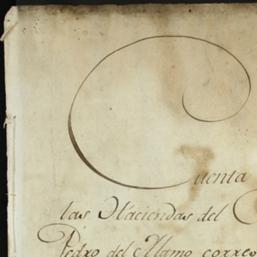 Cuenta
las Haciendas del
Pedro del Alamo corres